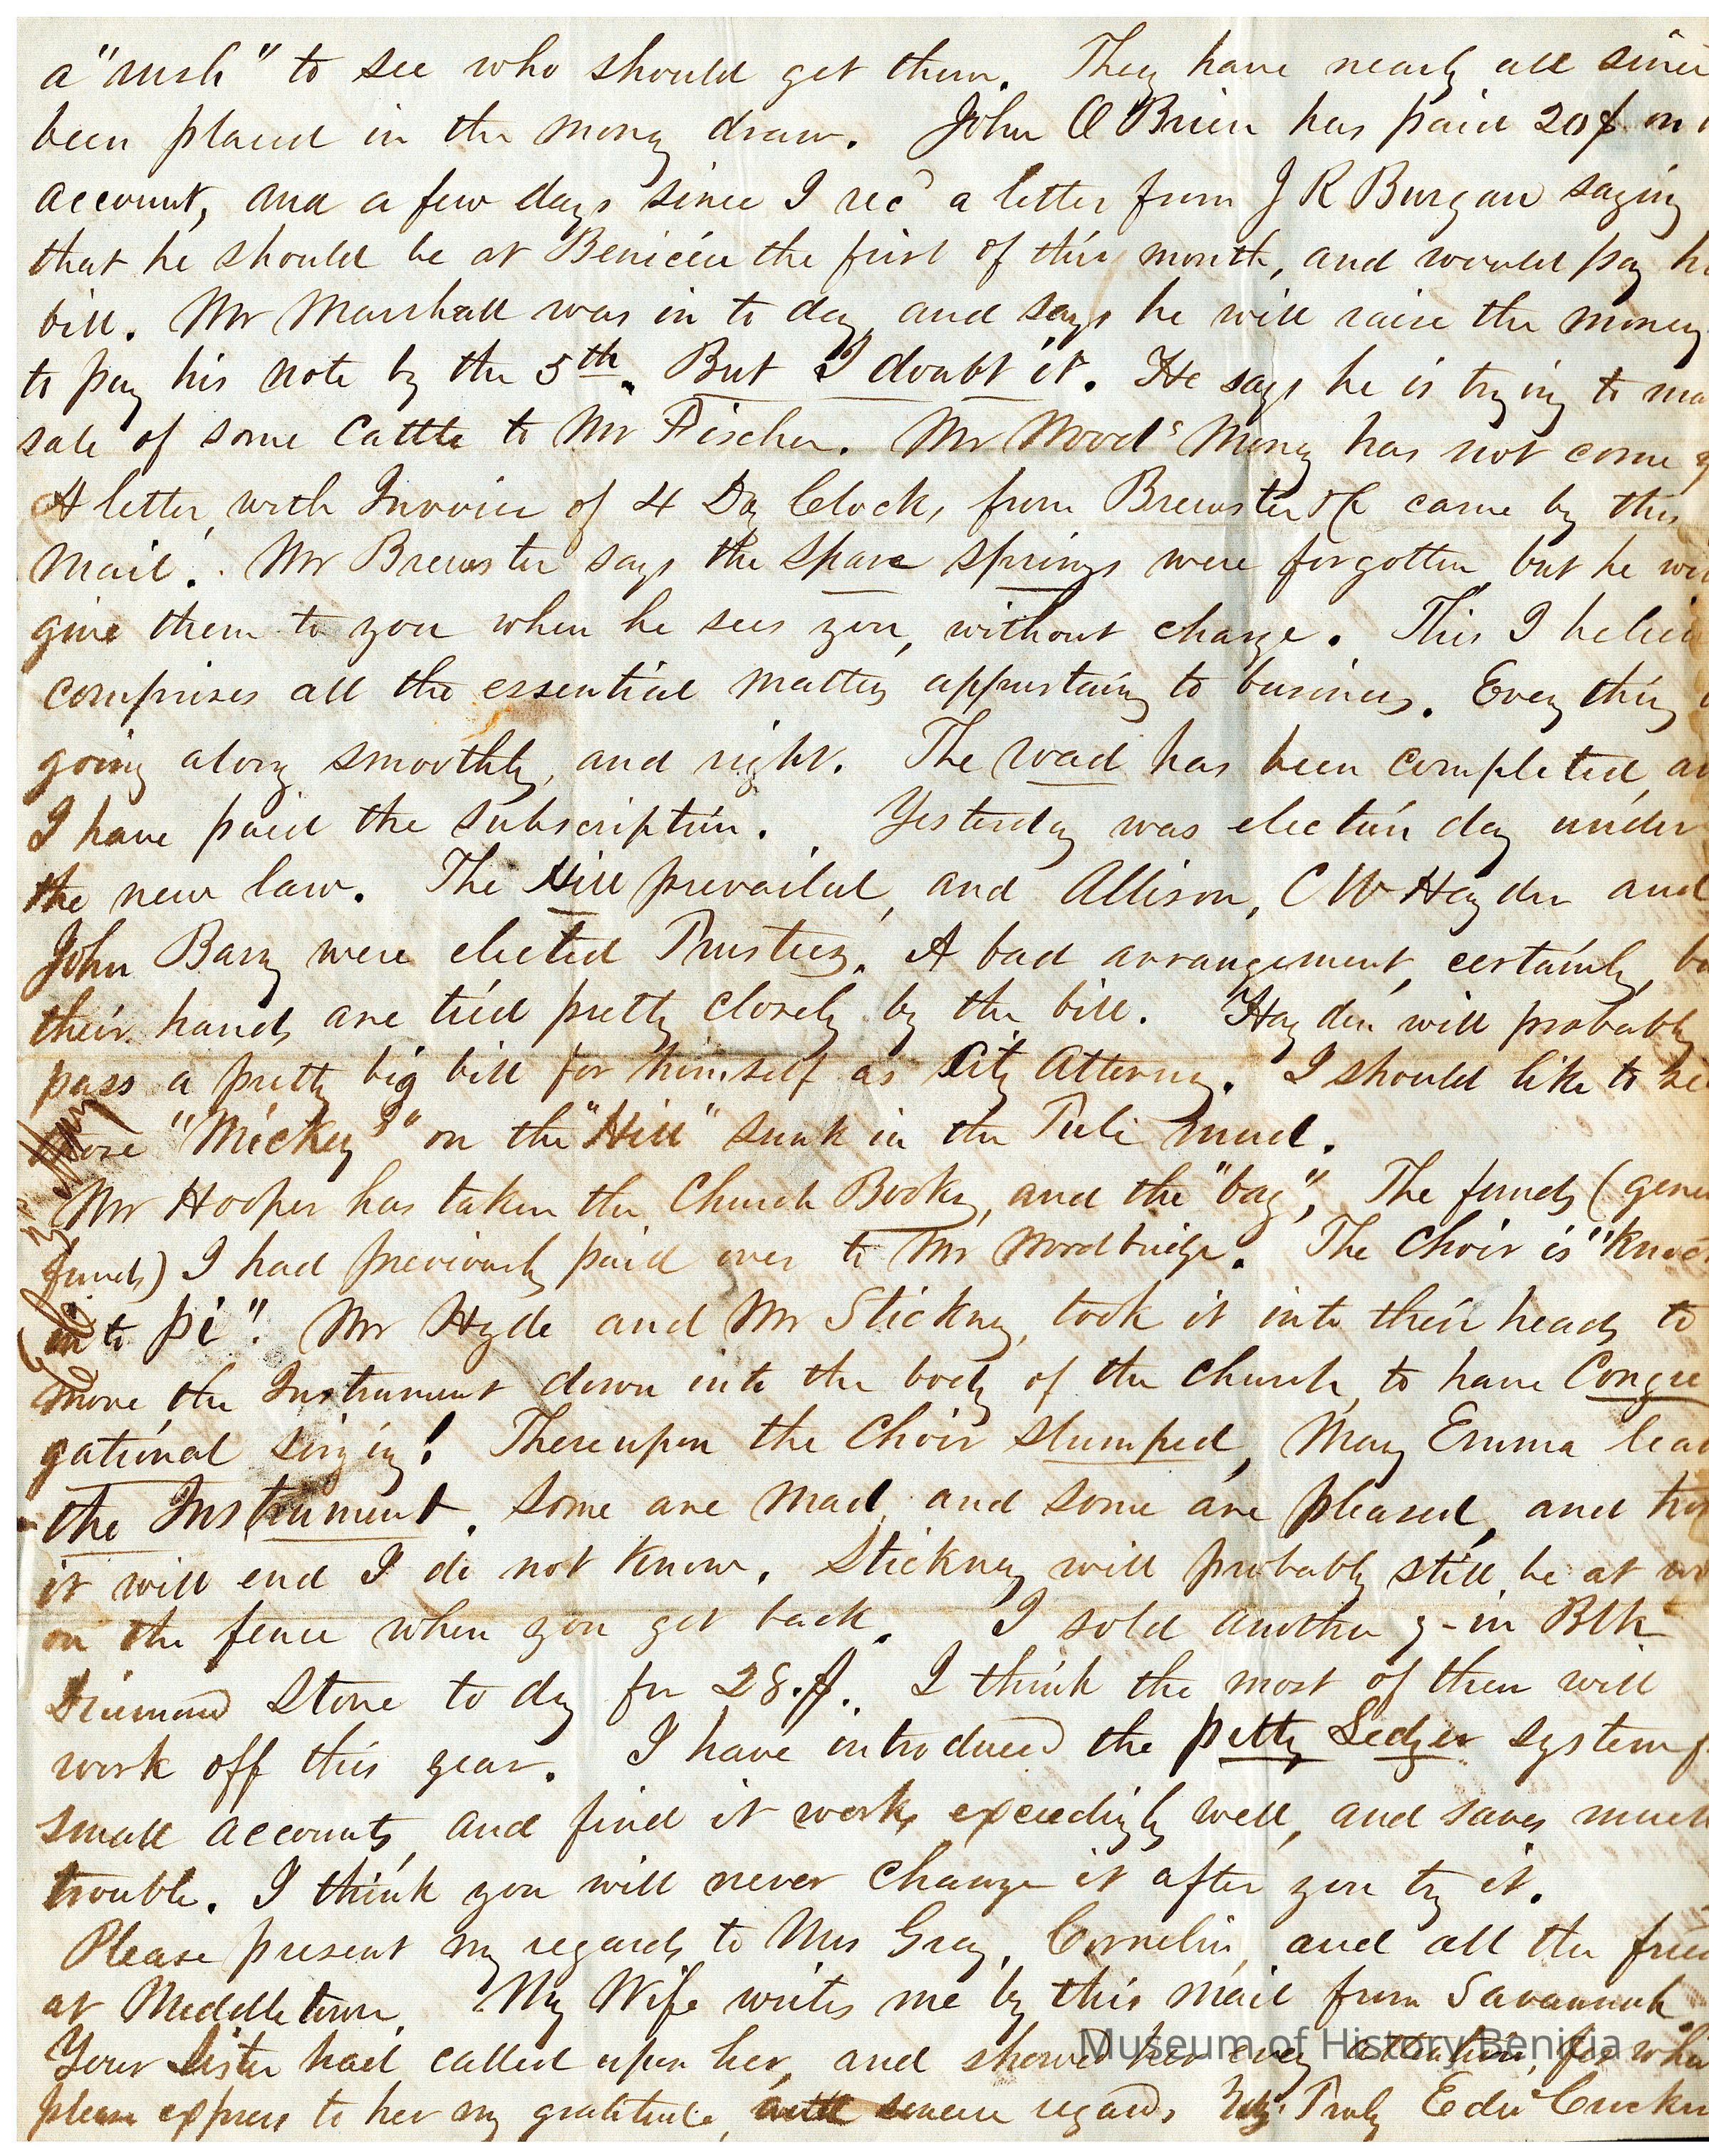 a "rush" to see who should get them. They have nearly all since
been placed in the money draw. John O Brien has paid 20$ on
account, and a few days since I recd a letter from J R Burgan saying
that he should be at Benicia the first of this month, and would pay
bill. Mr Marshall was in to day, and says he will raise the money
to pay his note by the 5th. But I doubt it. He says he is trying to
sale of some Cattle to Mr Fischer. Mr Wood's Money has not come
A letter, with Invoice of 4 Day Clocks, from Brewster & C came by this
Mail. Mr Brewster says the spare springs were forgotten, but he
give them to you when he sees you, without charge. This I
comprises all the essential matters appurtaing to business. Every thing
going along smoothly, and right. The road has been completed,
I have paid the subscription. Yesterday was election day under
the new law. The Hill prevailed, and Allison, C W Hayden and
John Barry were elected Trustees. A bad arrangement, certainly,
their hands are tied pretty closely by the bill. Hayden will probably
pass a pretty big bill for himself as City Attorney. I should like to
more "Mickeys" on the "Hill" sunk in the Tule mud.
Mr Hooper has taken the Church Books, and the "bag", The funds (
funds) I had previously paid over to Mr Woodbridge. The Choir is
into pi". Mr Hyde and Mr Stickney, took it into their heads to
move the Instrument down into the body of the church, to have Congre
gational singing! Thereupon the Choir stumped, Mary Emma
the Instrument. Some are mad, and some are pleased, and
it will end I do not know. Stickney will probably still be at
on the fence when you get back. I sold another in Blk
Diamond Stove to day for 28.$. I think the most of them will
work off this year. I have introduced the petty Ledger system
small accounts, and find it works exceedingly well, and saves much
trouble. I think you will never change it after you try it.
Please present my regards to Mrs Gray, Cornelia, and all the
at Middletown. My Wife writes me by this mail from Savannah
Your Sister had called upon her, and showed her every attention, for
please express to her my gratitude, sincere regards Truly
Museum of History Benicia